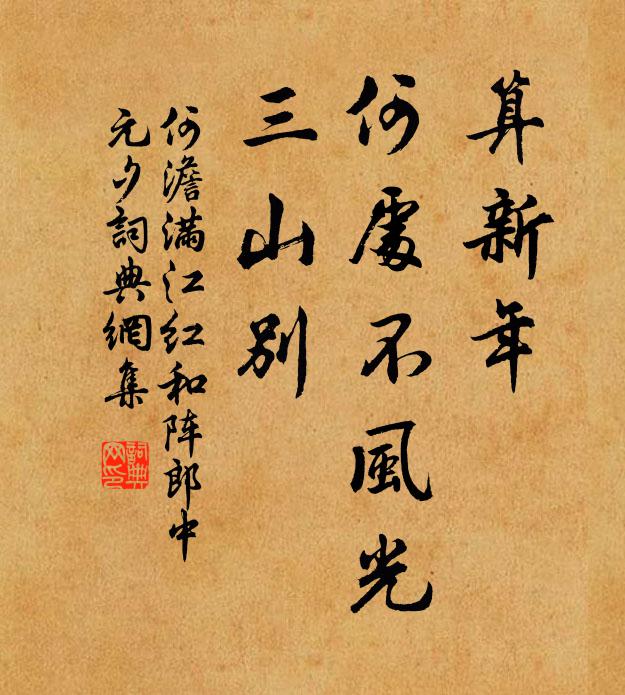 算新年
何處不風光
三山別
何澹满江红和阵郎中
元夕詞典網集
詞典网印